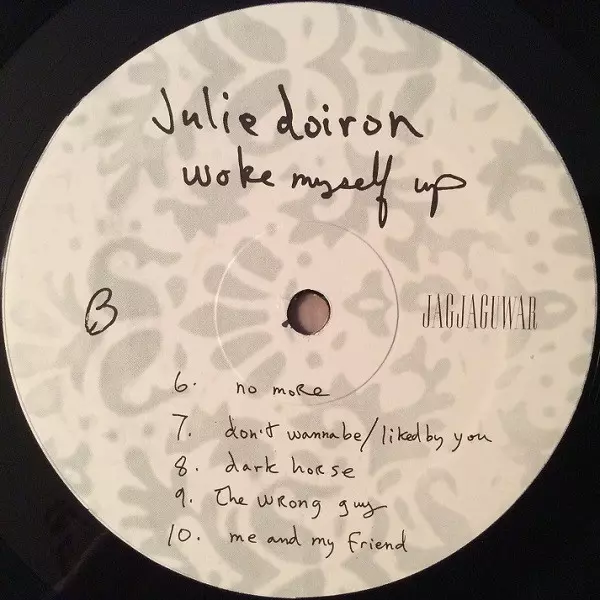 Julie doiron
woke myself up
B
JAGJAGUWAR
6. no more
7. don't wannabe/liked by you
8. dark horse
9. the wrong guy
10. me and my friend